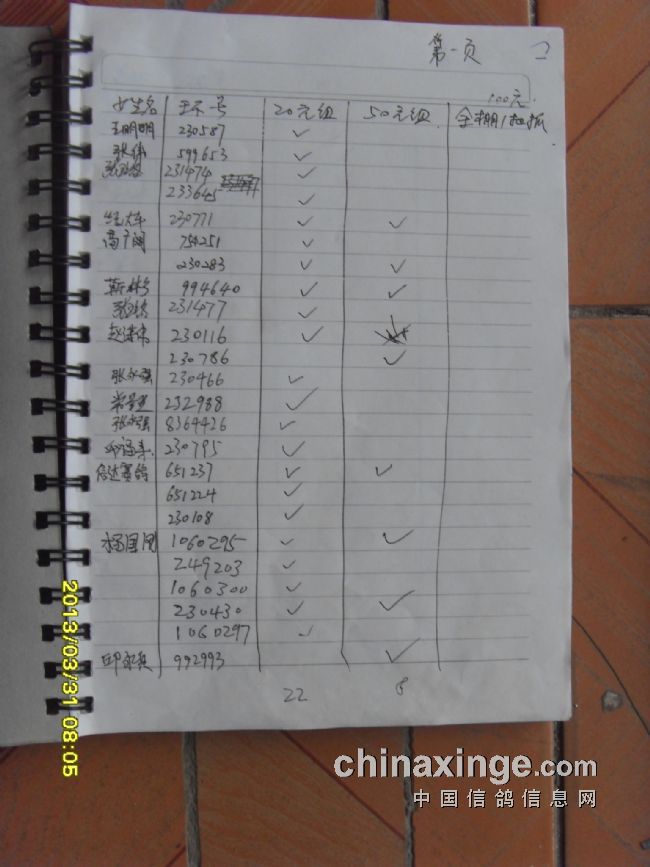 第一页
100元
姓名 环号 20元组 50元组
王明明 230587 ✓
张伟 599653 ✓
231474 ✓
233645 ✓
230771 ✓ ✓
754251 ✓
230283 ✓ ✓
994640 ✓ ✓
231477 ✓
230116 ✓
230786 ✓
230466 ✓
232988 ✓
8364426 ✓
230795 ✓
信达赛鸽 651237 ✓ ✓
651224 ✓
230108 ✓
杨国闯 1060295 ✓ ✓
249203 ✓
1060300 ✓
230430 ✓ ✓
1060297 ✓
992993 ✓
22 8
2013/03/31 08:05
chinaxinge.com
中国信鸽信息网